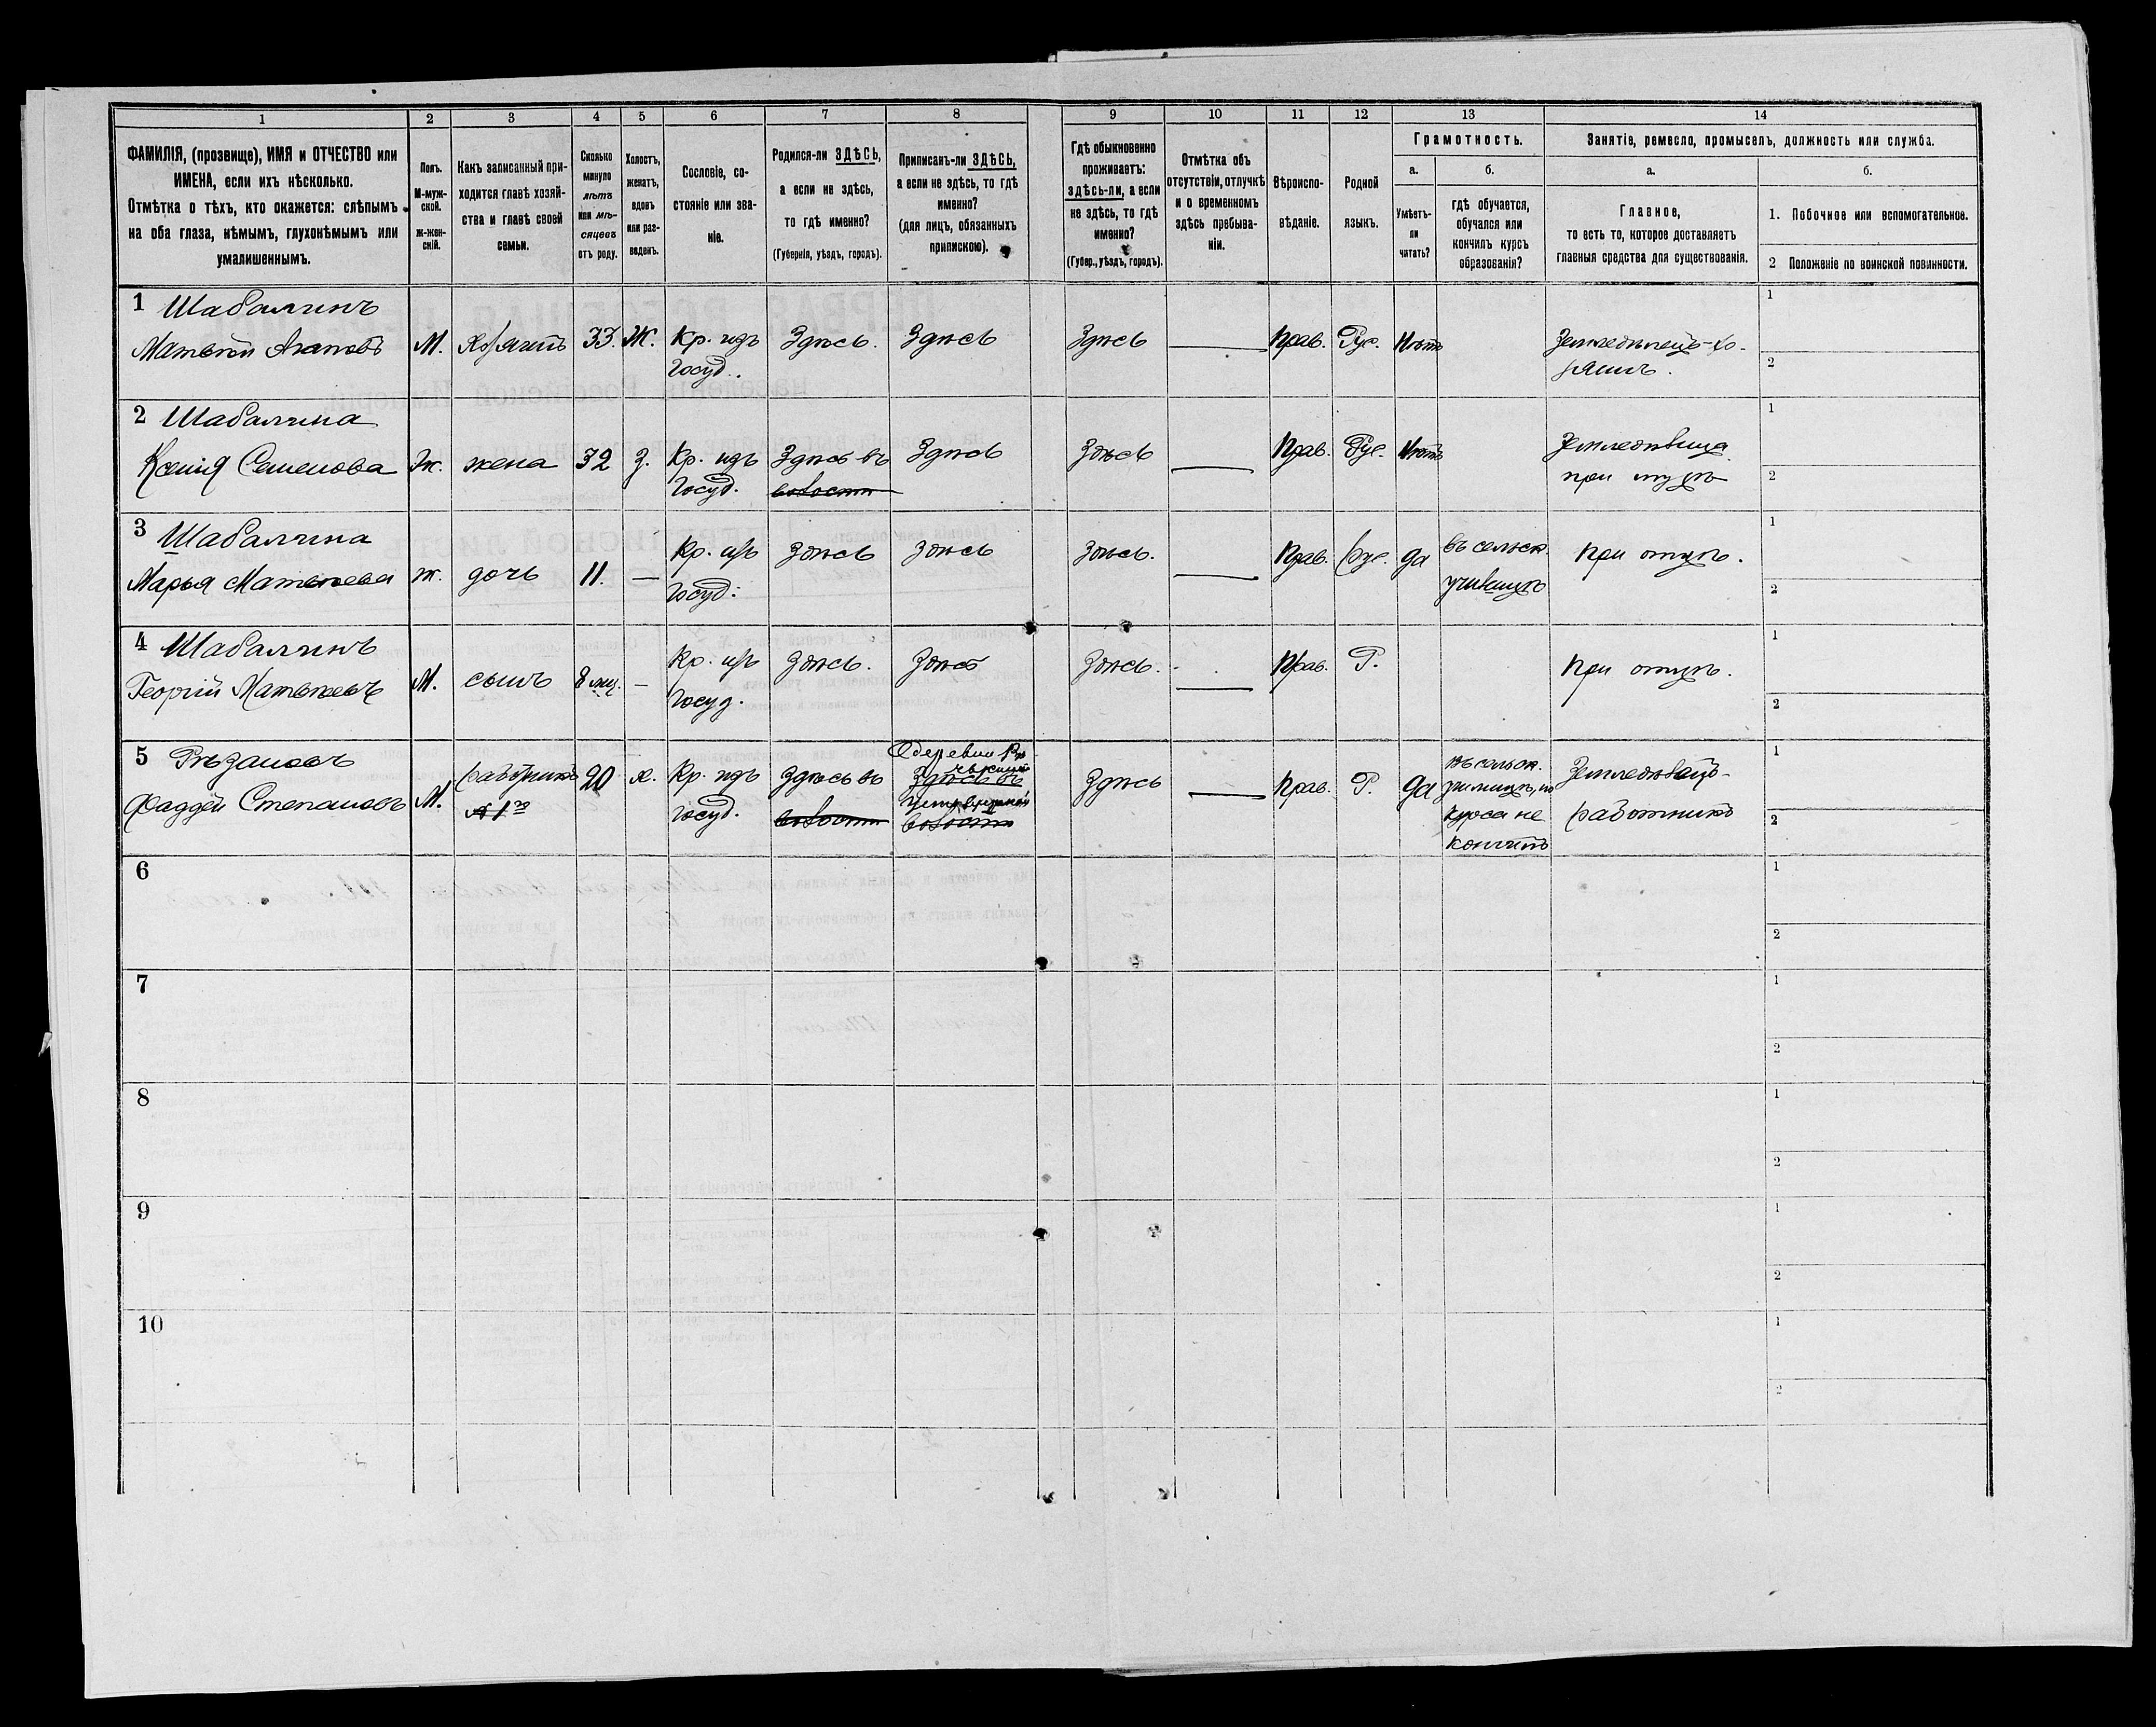 1 2 3 4 5 6 7 8 9 10 11 12 13 14
ФАМИЛІЯ, (прозвище), ИМЯ и ОТЧЕСТВО или
ИМЕНА, если ихъ нѣсколько.
Отмѣтка о тѣхъ, кто окажется: слѣпымъ
на оба глаза, нѣмымъ, глухонѣмымъ или
умалишеннымъ.
Полъ.
М-муж-
ской.
ж-жен-
скій.
Какъ записанный при-
ходится главѣ хозяй-
ства и главѣ своей
семьи.
Сколько
минуло
лѣтъ
или мѣ-
сяцевъ
отъ роду.
Холостъ,
женатъ,
вдовъ
или раз-
веденъ.
Сословіе, со-
стояніе или зва-
ніе.
Родился-ли ЗДѢСЬ,
а если не здѣсь,
то гдѣ именно?
(Губернія, уѣздъ, городъ).
Приписанъ-ли ЗДѢСЬ,
а если не здѣсь, то гдѣ
именно?
(для лицъ, обязанныхъ
припискою).
Гдѣ обыкновенно
проживаетъ:
здѣсь-ли, а если
не здѣсь, то гдѣ
именно?
(Губер., уѣздъ, городъ).
Отмѣтка объ
отсутствіи, отлучкѣ
и о временномъ
здѣсь пребыва-
ніи.
Вѣроиспо-
вѣданіе.
Родной
языкъ.
Грамотность.
а. б.
Умѣетъ-
ли
читать?
гдѣ обучается,
обучался или
кончилъ курсъ
образованія?
Занятіе, ремесло, промыселъ, должность или служба.
а. б.
Главное,
то есть то, которое доставляетъ
главныя средства для существованія.
1. Побочное или вспомогательное.
2 Положеніе по воинской повинности.
1 Шабалинъ 1
Матвѣй Агаповъ М. Хозяинъ 33. Ж. Кр. изъ Здѣсь. Здѣсь Здѣсь Прав. Рус. Нѣтъ Земледѣлецъ-хо-
Госуд. зяинъ. 2
2 Шабалина 1
Ксенія Семенова Ж. жена 32 З. Кр. изъ Здѣсь въ Здѣсь Здѣсь Прав. Рус. Нѣтъ Земледѣлица
Госуд. волости при мужѣ 2
3 Шабалина 1
Марья Матвѣева Ж. дочь 11. — Кр. изъ Здѣсь Здѣсь Здѣсь. Прав. Рус. да въ сельск. при отцѣ.
Госуд. училищѣ 2
4 Шабалинъ 1
Георгій Матвѣевъ М. сынъ 8 мц. — Кр. изъ Здѣсь. Здѣсь Здѣсь. Прав. Р. при отцѣ.
Госуд. 2
5 Рѣзановъ деревни 1
Фаддей Степановъ М. работникъ 20 х. Кр. изъ Здѣсь въ Здѣсь въ Здѣсь Прав. Р. да въ сельск. Земледѣлецъ-
№ 1го Госуд. волости училищѣ, но работникъ 2
волости курса не
кончилъ
6 1
2
7 1
2
8 1
2
9 1
2
10 1
2